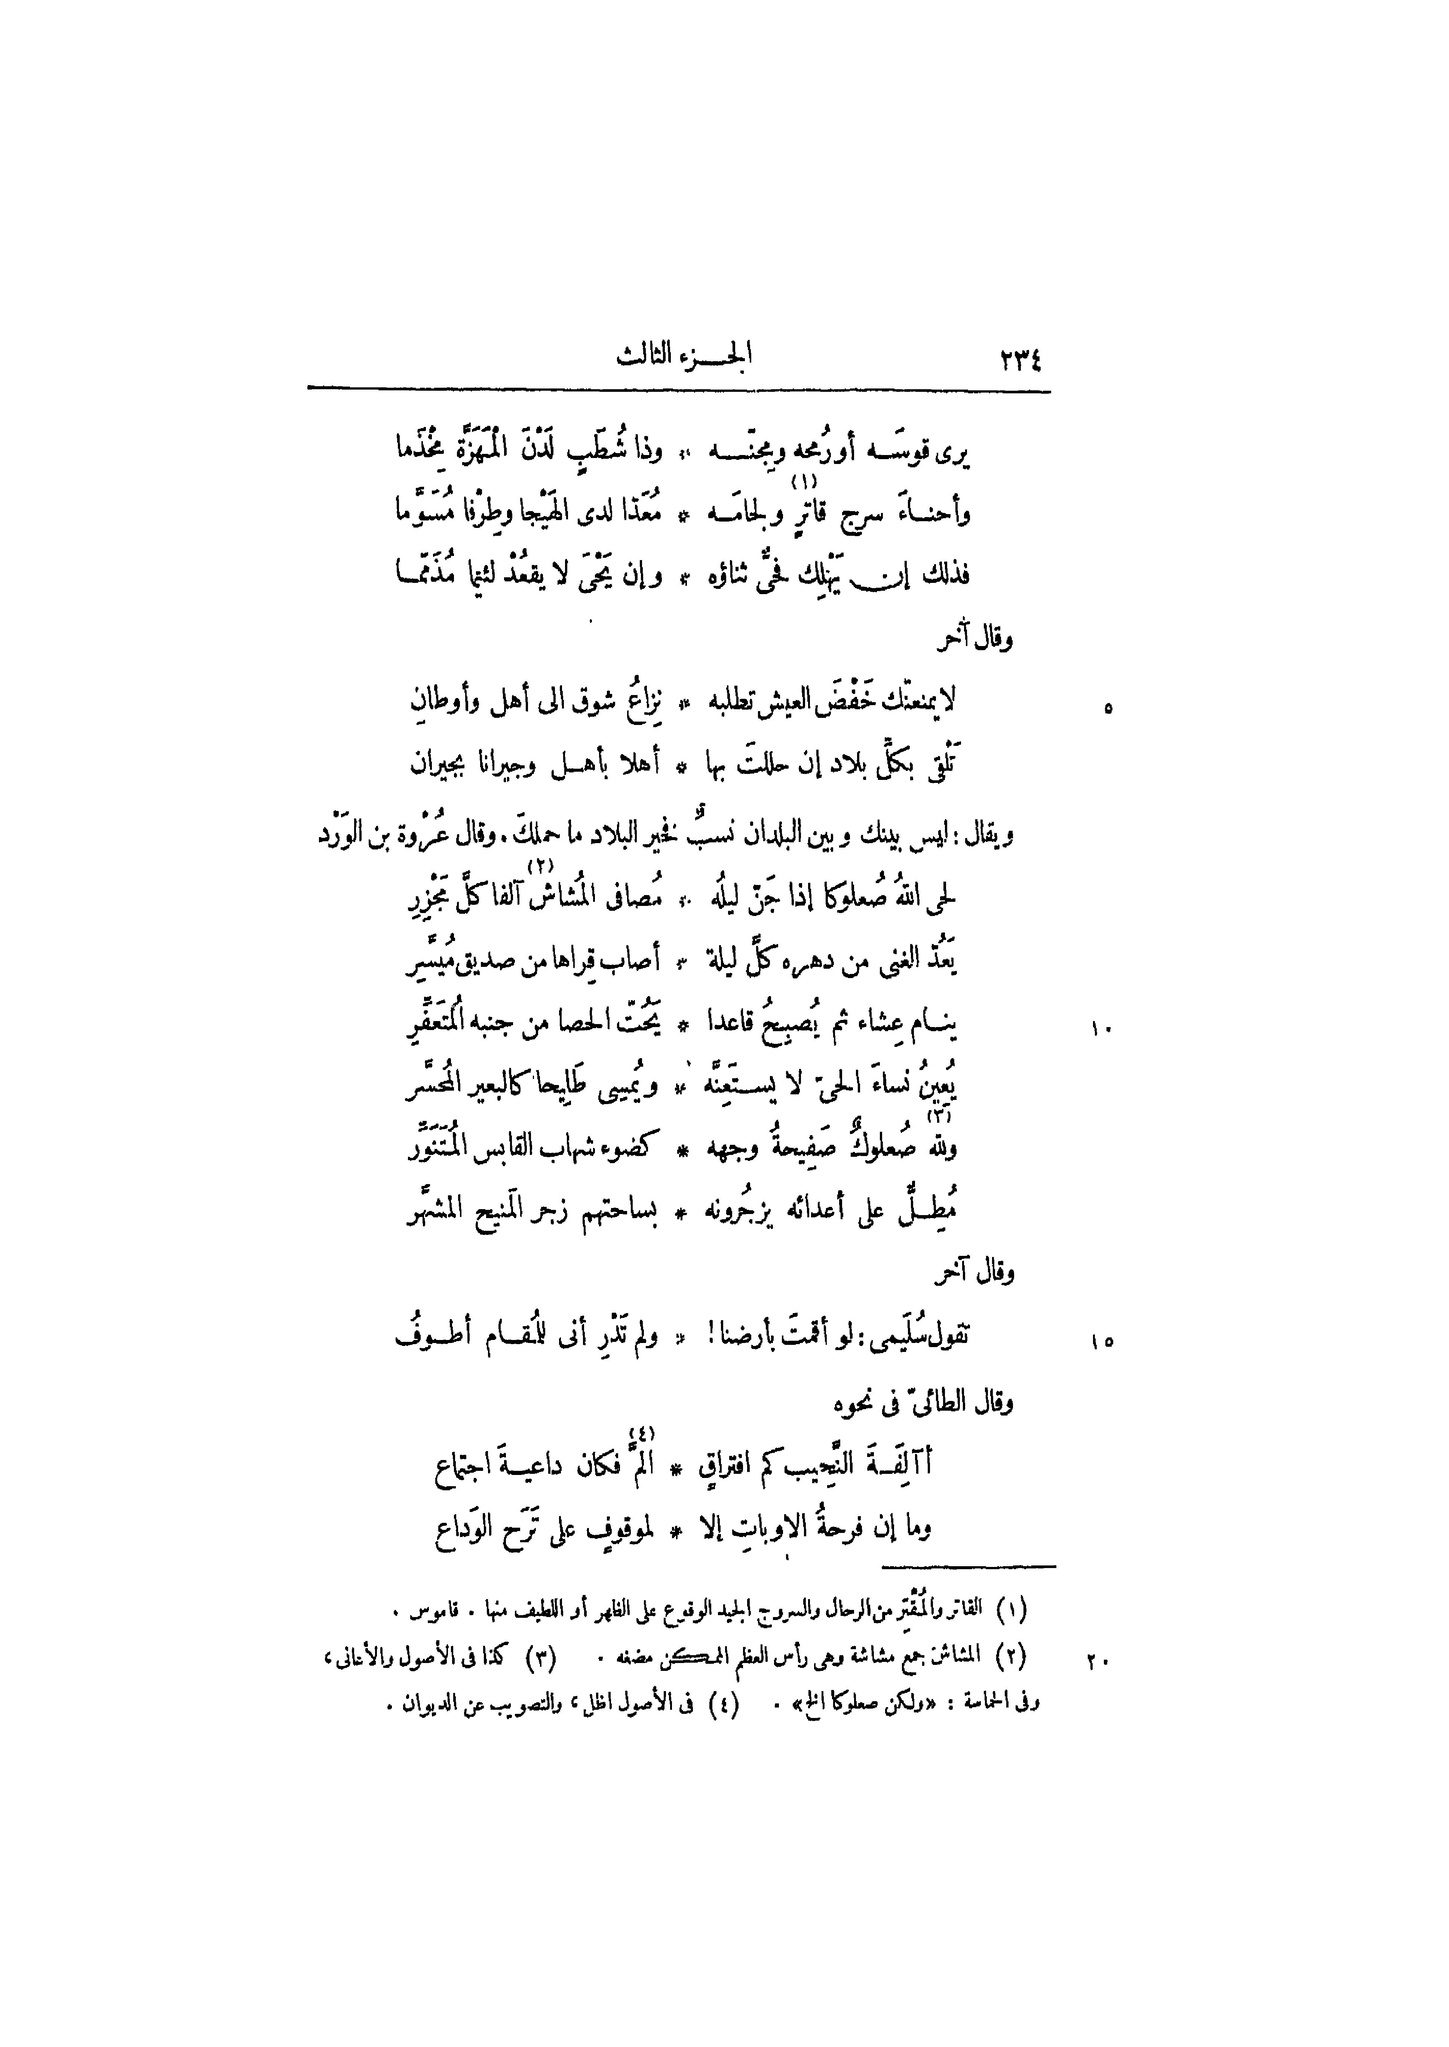 ٢٣٤ الجـــزء الثالث
يرى قوسَـه أو رُمحه ومِجنّـــه * وذا شُطَبٍ لَدْنَ الْمَهَزَّة مِخْذَما
وأحنـاءَ سرج قاترٍ (١) ولجامَـه * مُعَذا لدى الهَيْجا وطِرْفا مُسَوَّما
فذلك إن يَهْلِك فحىٌّ ثناؤه * وإن يَحْىَ لا يقعُدْ لئيما مُذَمَّمـا
وقال آخر
٥ لا يمنعنّك خَفْضَ العيش تطلبه * نِزاعُ شوق الى أهل وأوطانِ
تَلْقى بكلِّ بلاد إن حللتَ بها * أهلا بأهـل وجيرانا بجيران
ويقال: ليس بينك وبين البلدان نسبٌ فخير البلاد ما حملكَ. وقال عُرْوة بن الوَرْد
لحى اللهُ صُعلوكا إذا جَنّ ليلُه * مُصافى المُشاش (٢) آلفا كلَّ مَجْزِرِ
يَعُدّ الغنى من دهره كلَّ ليلة * أصاب قِراها من صديق مُيَسَّرِ
١٠ ينـام عِشاء ثم يُصبِحُ قاعدا * يَحُتّ الحصا من جنبه المُتَعَفِّرِ
يُعِينُ نساءَ الحىّ لا يستَعِنَّه * ويُمسِى طَلِيحا كالبعير المُحسَّر
وللهِ (٣) صُعلوكٌ صَفِيحةُ وجهه * كضوء شهاب القابس المُتَنَوِّر
مُطِـلٌّ على أعدائه يزجُرونه * بساحتهم زجر المَنيح المشهَّر
وقال آخر
١٥ تقول سُلَيمى: لو أقمتَ بأرضنا! * ولم تَدْرِ أنى للمُقـام أطـوفُ
وقال الطائىّ فى نحوه
أآلِفَـةَ النَّحِيب كم افتراقٍ * المَّ (٤) فكان داعيـةَ اجتماع
وما إن فرحةُ الاوباتِ إلا * لموقوفٍ على تَرَح الوَداع
(١) القاتر والمُقْتِر من الرحال والسروج الجيد الوقوع على الظهر أو اللطيف منها . قاموس .
٢٠ (٢) المشاش جمع مشاشة وهى رأس العظم الممكن مضغه . (٣) كذا فى الأصول والأغانى،
وفى الحماسة : «ولكن صعلوكا الخ» . (٤) فى الأصول اظل، والتصويب عن الديوان .